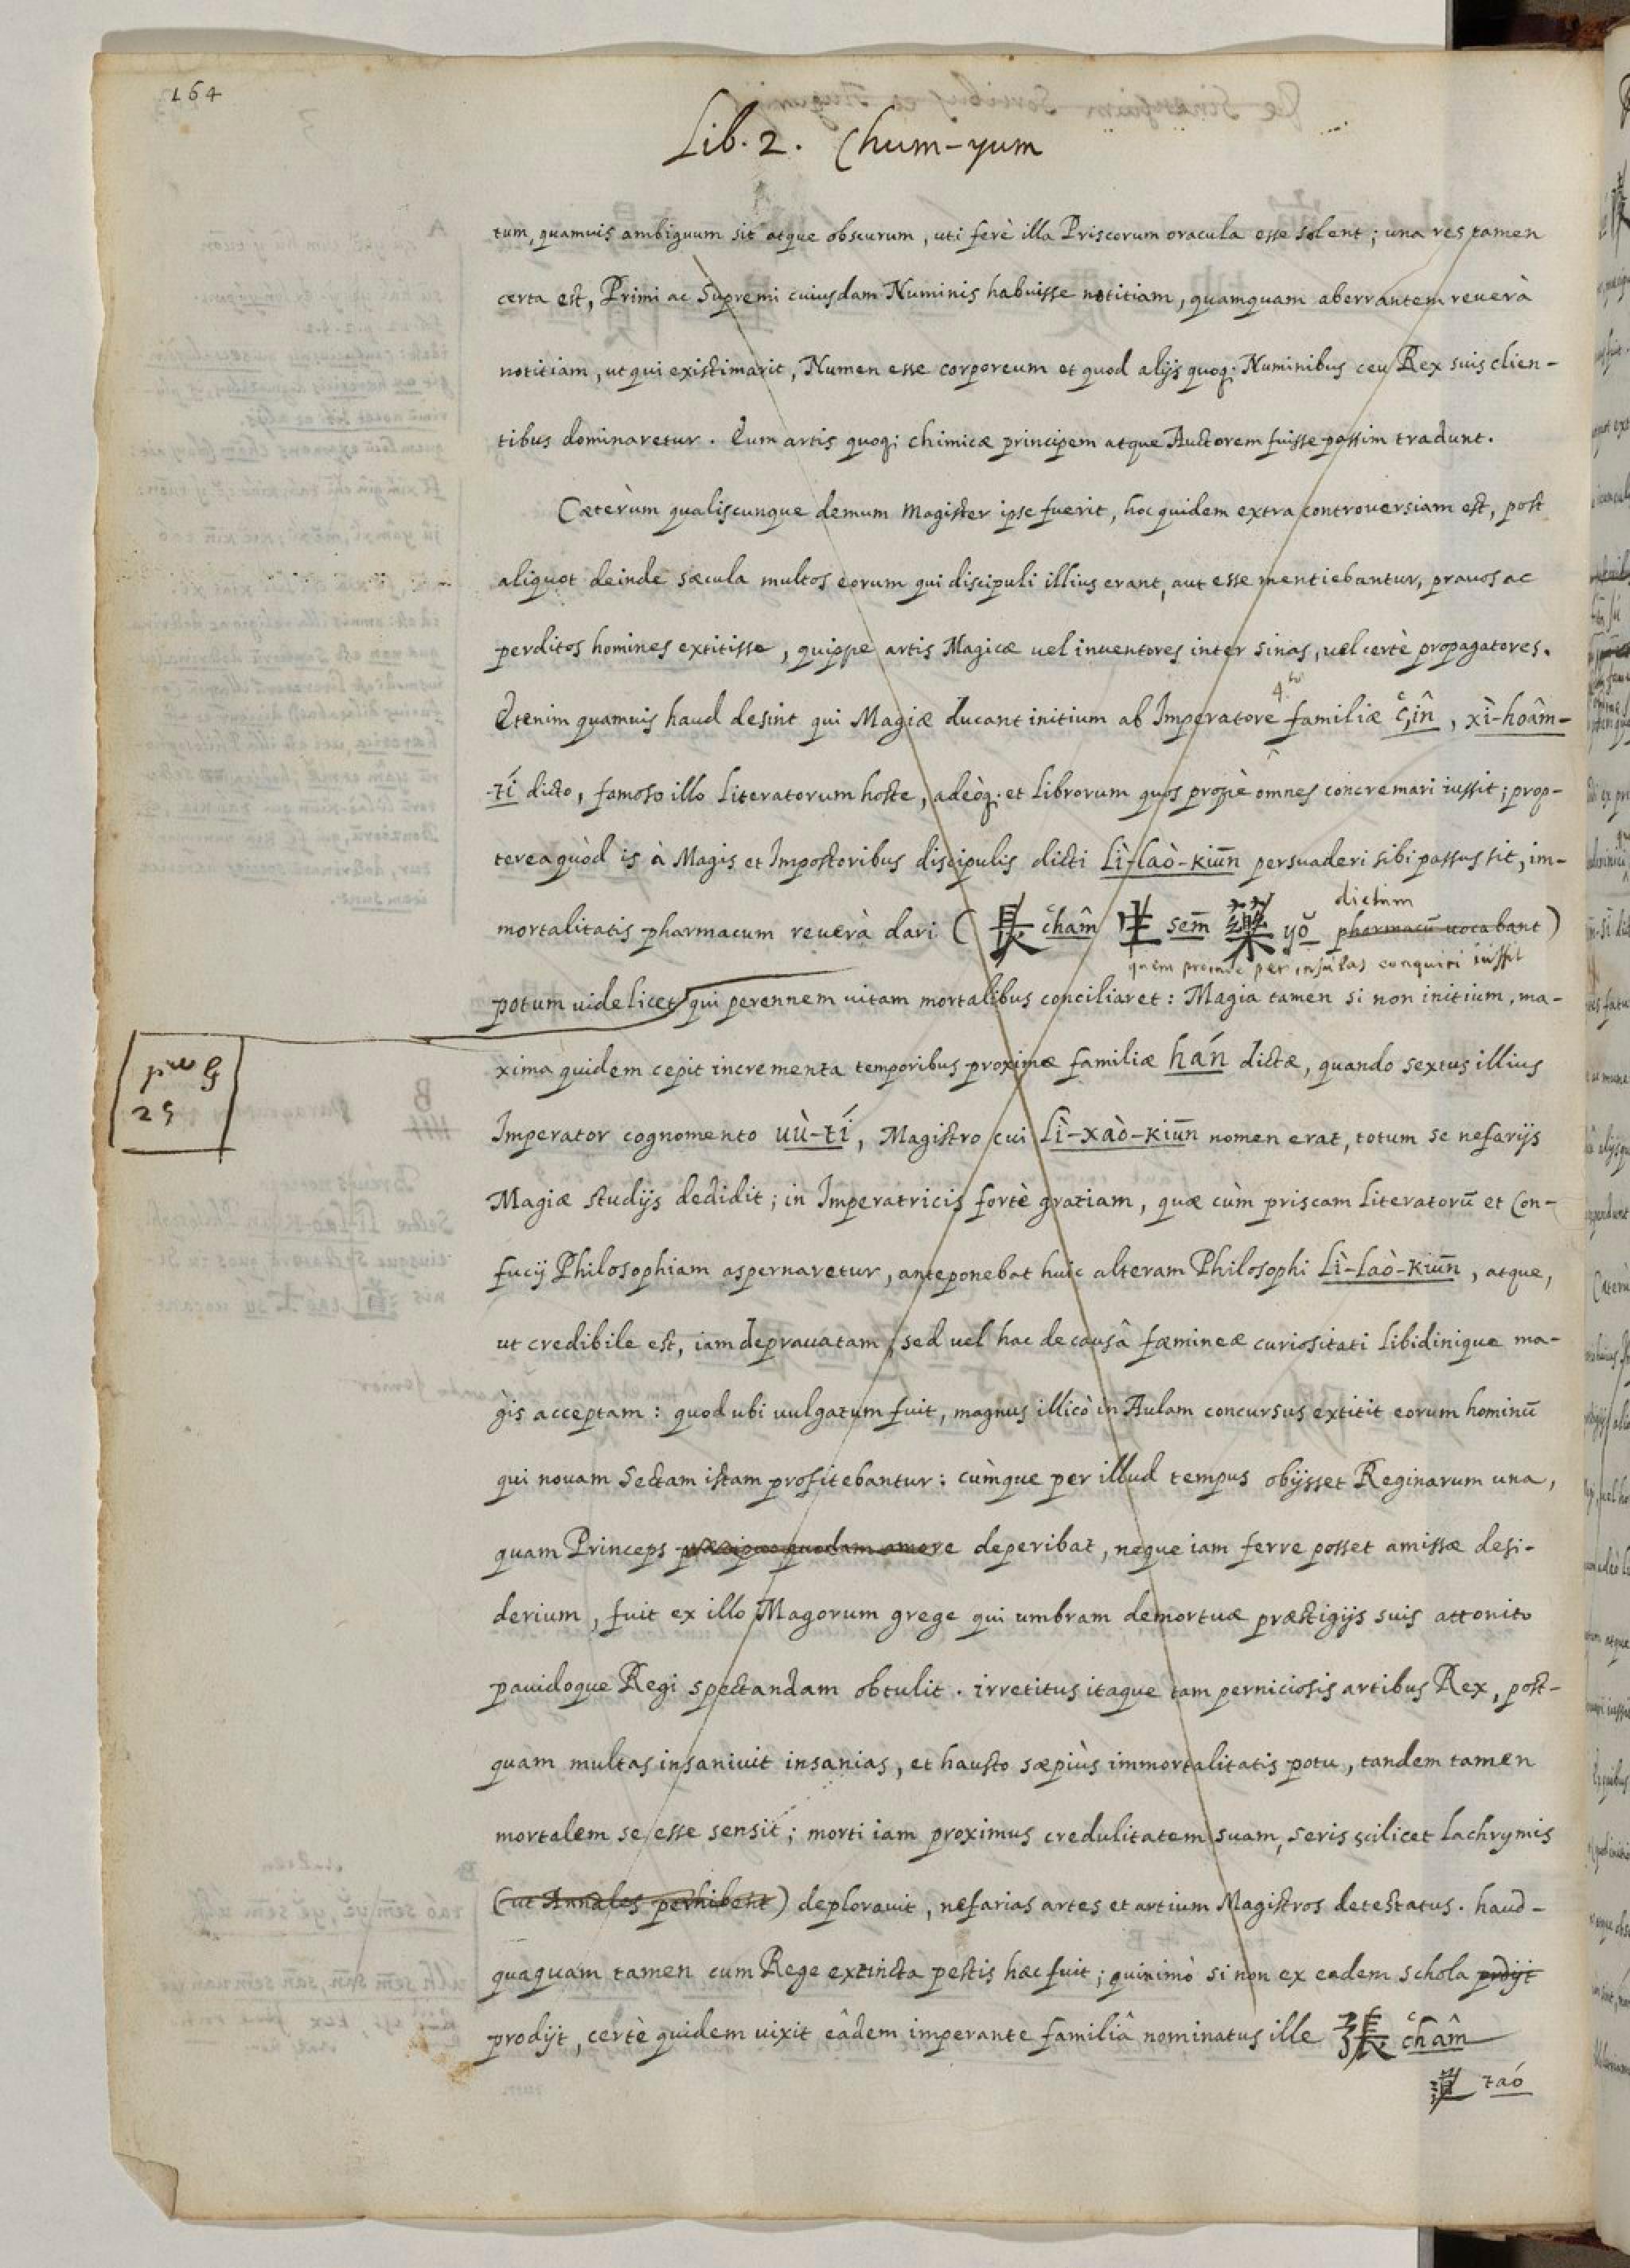 164
Lib. 2. Chum-yum
tum, quamuis ambiguum sit atque obscurum, uti ferè illa Priscorum oracula esse solent; una res tamen
certa est, Primi ac Supremi cuiusdam Numinis habuisse notitiam, quamquam aberrantem reuerà
notitiam, ut qui existimarit, Numen esse corporeum et quod alijs quoq; Numinibus ceu Rex suis clien-
tibus dominaretur. Eum artis quoq; chimicæ principem atque Auctorem fuisse passim tradunt.
Cæterùm qualiscunque demum Magister ipse fuerit, hoc quidem extra controuersiam est, post
aliquot deinde sæcula multos eorum qui discipuli illius erant, aut esse mentiebantur, prauos ac
perditos homines extitisse, quippe artis Magicæ uel inuentores inter Sinas, uel certè propagatores.
Etenim quamuis haud desint qui Magiæ ducant initium ab Imperatore 4.tæ familiæ çîn, xì-hoâm-
-tí dicto, famoso illo Literatorum hoste, adeòq; et Librorum quos propè omnes concremari iussit; prop-
terea quòd is à Magis et Impostoribus discipulis dicti Lì-laò-kiūn persuaderi sibi passus sit, im-
dictum
mortalitatis pharmacum reuerà dari (長 châm 生 sem̄ 藥 yŏ pharmacū uocabant)
quem proinde per insulas conquiri iussit
potum uidelicet qui perennem uitam mortalibus conciliaret: Magia tamen si non initium, ma-
xima quidem cepit incrementa temporibus proximæ familiæ hán dictæ, quando sextus illius
25
Imperator cognomento uù-tí, Magistro cui Lì-xaò-kiūn nomen erat, totum se nefarijs
Magiæ studijs dedidit; in Imperatricis fortè gratiam, quæ cùm priscam Literatorū et Con-
fucij Philosophiam aspernaretur, anteponebat huic alteram Philosophi Lì-laò-kiūn, atque,
ut credibile est, iam deprauatam, sed uel hac de causâ fæmineæ curiositati libidinique ma-
gis acceptam: quod ubi uulgatum fuit, magnus illicò in Aulam concursus extitit eorum hominū
qui nouam Sectam istam profitebantur: cùmque per illud tempus obijsset Reginarum una,
quam Princeps præcipuo quodam amore deperibat, neque iam ferre posset amissæ desi-
derium, fuit ex illo Magorum grege qui umbram demortuæ præstigijs suis attonito
pauidoque Regi spectandam obtulit. irretitus itaque tam perniciosis artibus Rex, post-
quam multas insaniuit insanias, et hausto sæpiùs immortalitatis potu, tandem tamen
mortalem se esse sensit; morti iam proximus credulitatem suam, seris scilicet lachrymis
(ut Annales perhibent) deplorauit, nefarias artes et artium Magistros detestatus. haud-
quaquam tamen cum Rege extincta pestis hæc fuit; quinimò si non ex eadem schola prodijt
prodijt, certè quidem uixit eâdem imperante familiâ nominatus ille 張 châm
道 taó